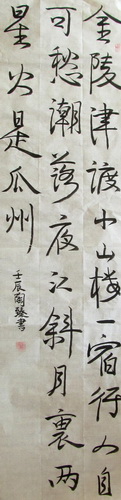 金陵津渡小山楼一宿行人自
可愁潮落夜江斜月裏两
星火是瓜州
壬辰 書